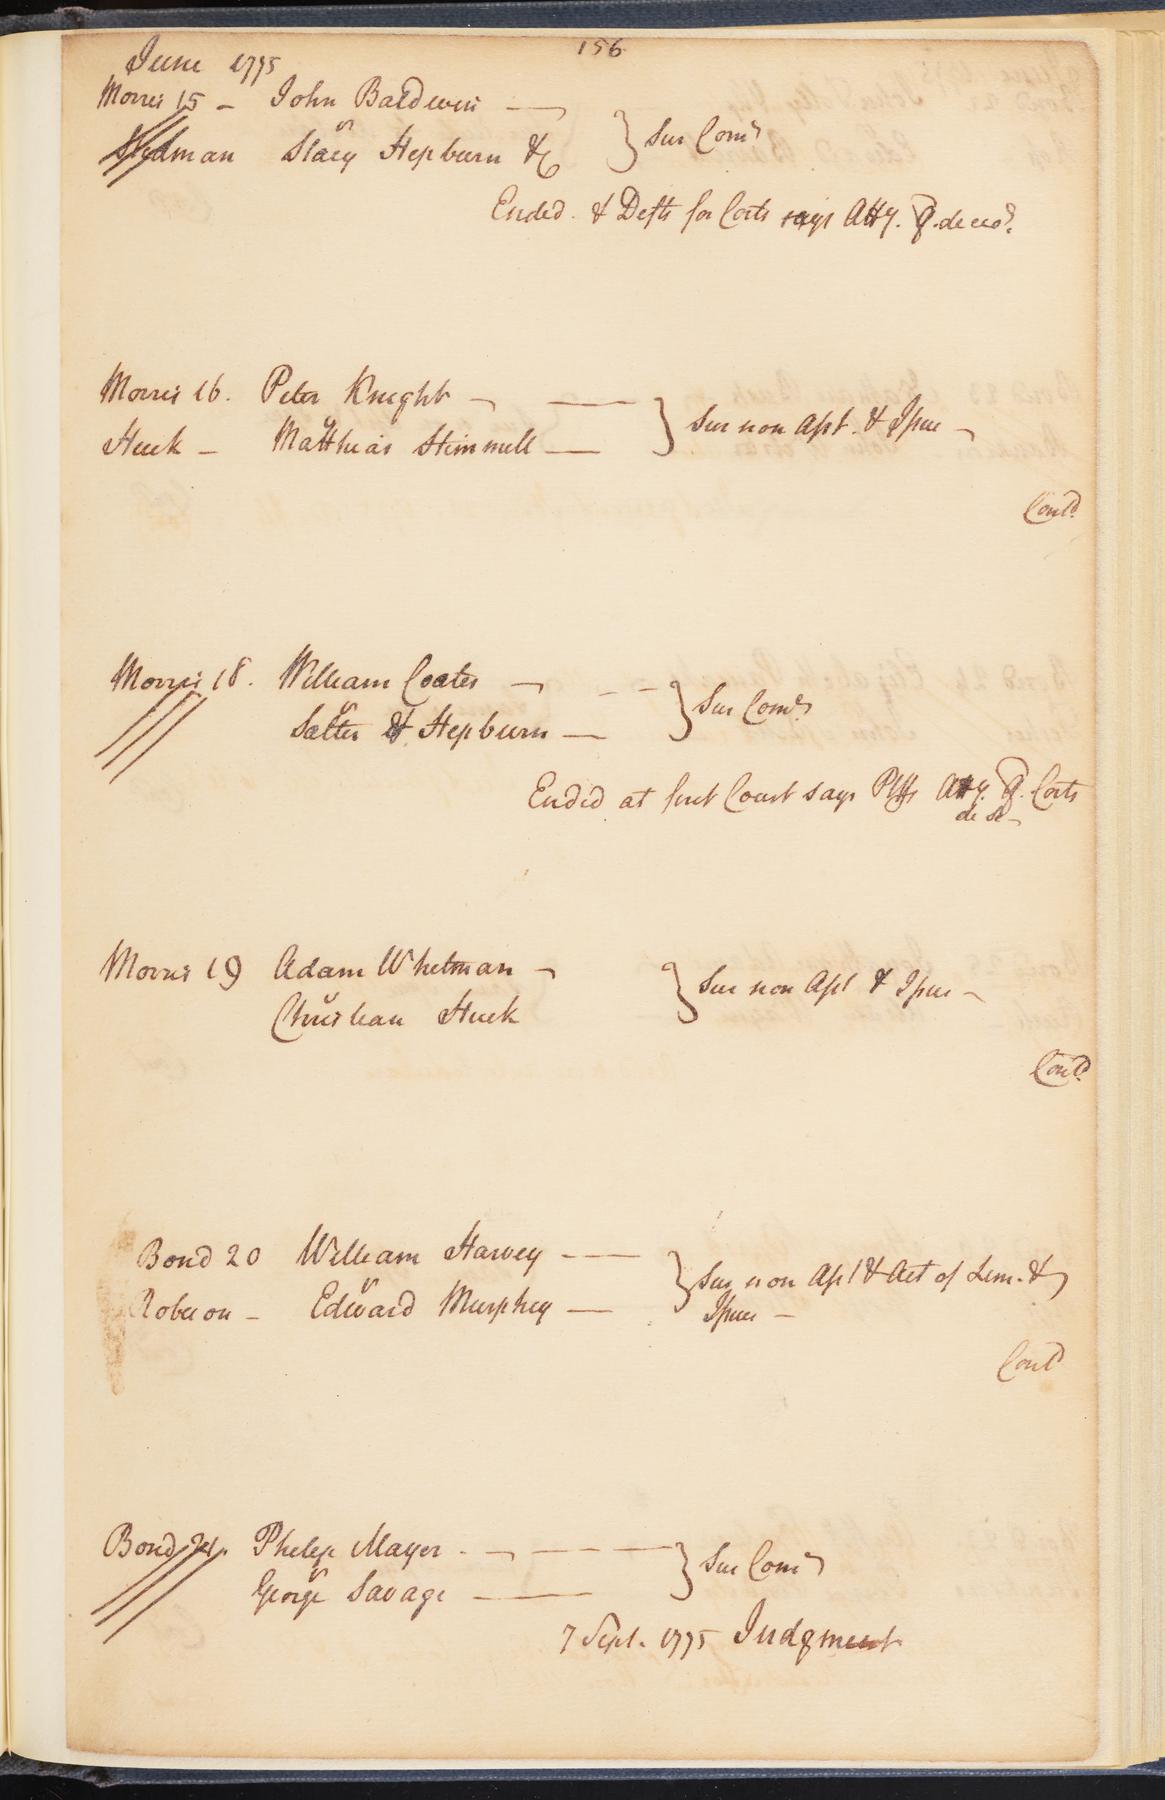 156
June 1775
Morris 15 – John Baldwin —
vs
Stedman Stacy Hepburn &c } Sur Coms
Ended. & Defts for Costs says Atty.
Morris 16. Peter Knight —
vs
Huck – Matthias Stimmell — } Sur non Asst. & Issue –
Contd
Morris 18. William Coates —
vs
Salter & Hepburn — } Sur Coms
Ended at first Court says Plffs Atty. Costs
Morris 19 Adam Whetman –
vs
Christian Huck } Sur non Asst & Issue –
Contd
Bond 20 William Harvey —
vs
Robeson – Edward Murphey — } Sur non Asst & Act of Lim. &
Issue –
Contd
Bond 21. Philip Mayer. —
vs
George Savage — } Sur Coms
7 Sept. 1775 Judgment